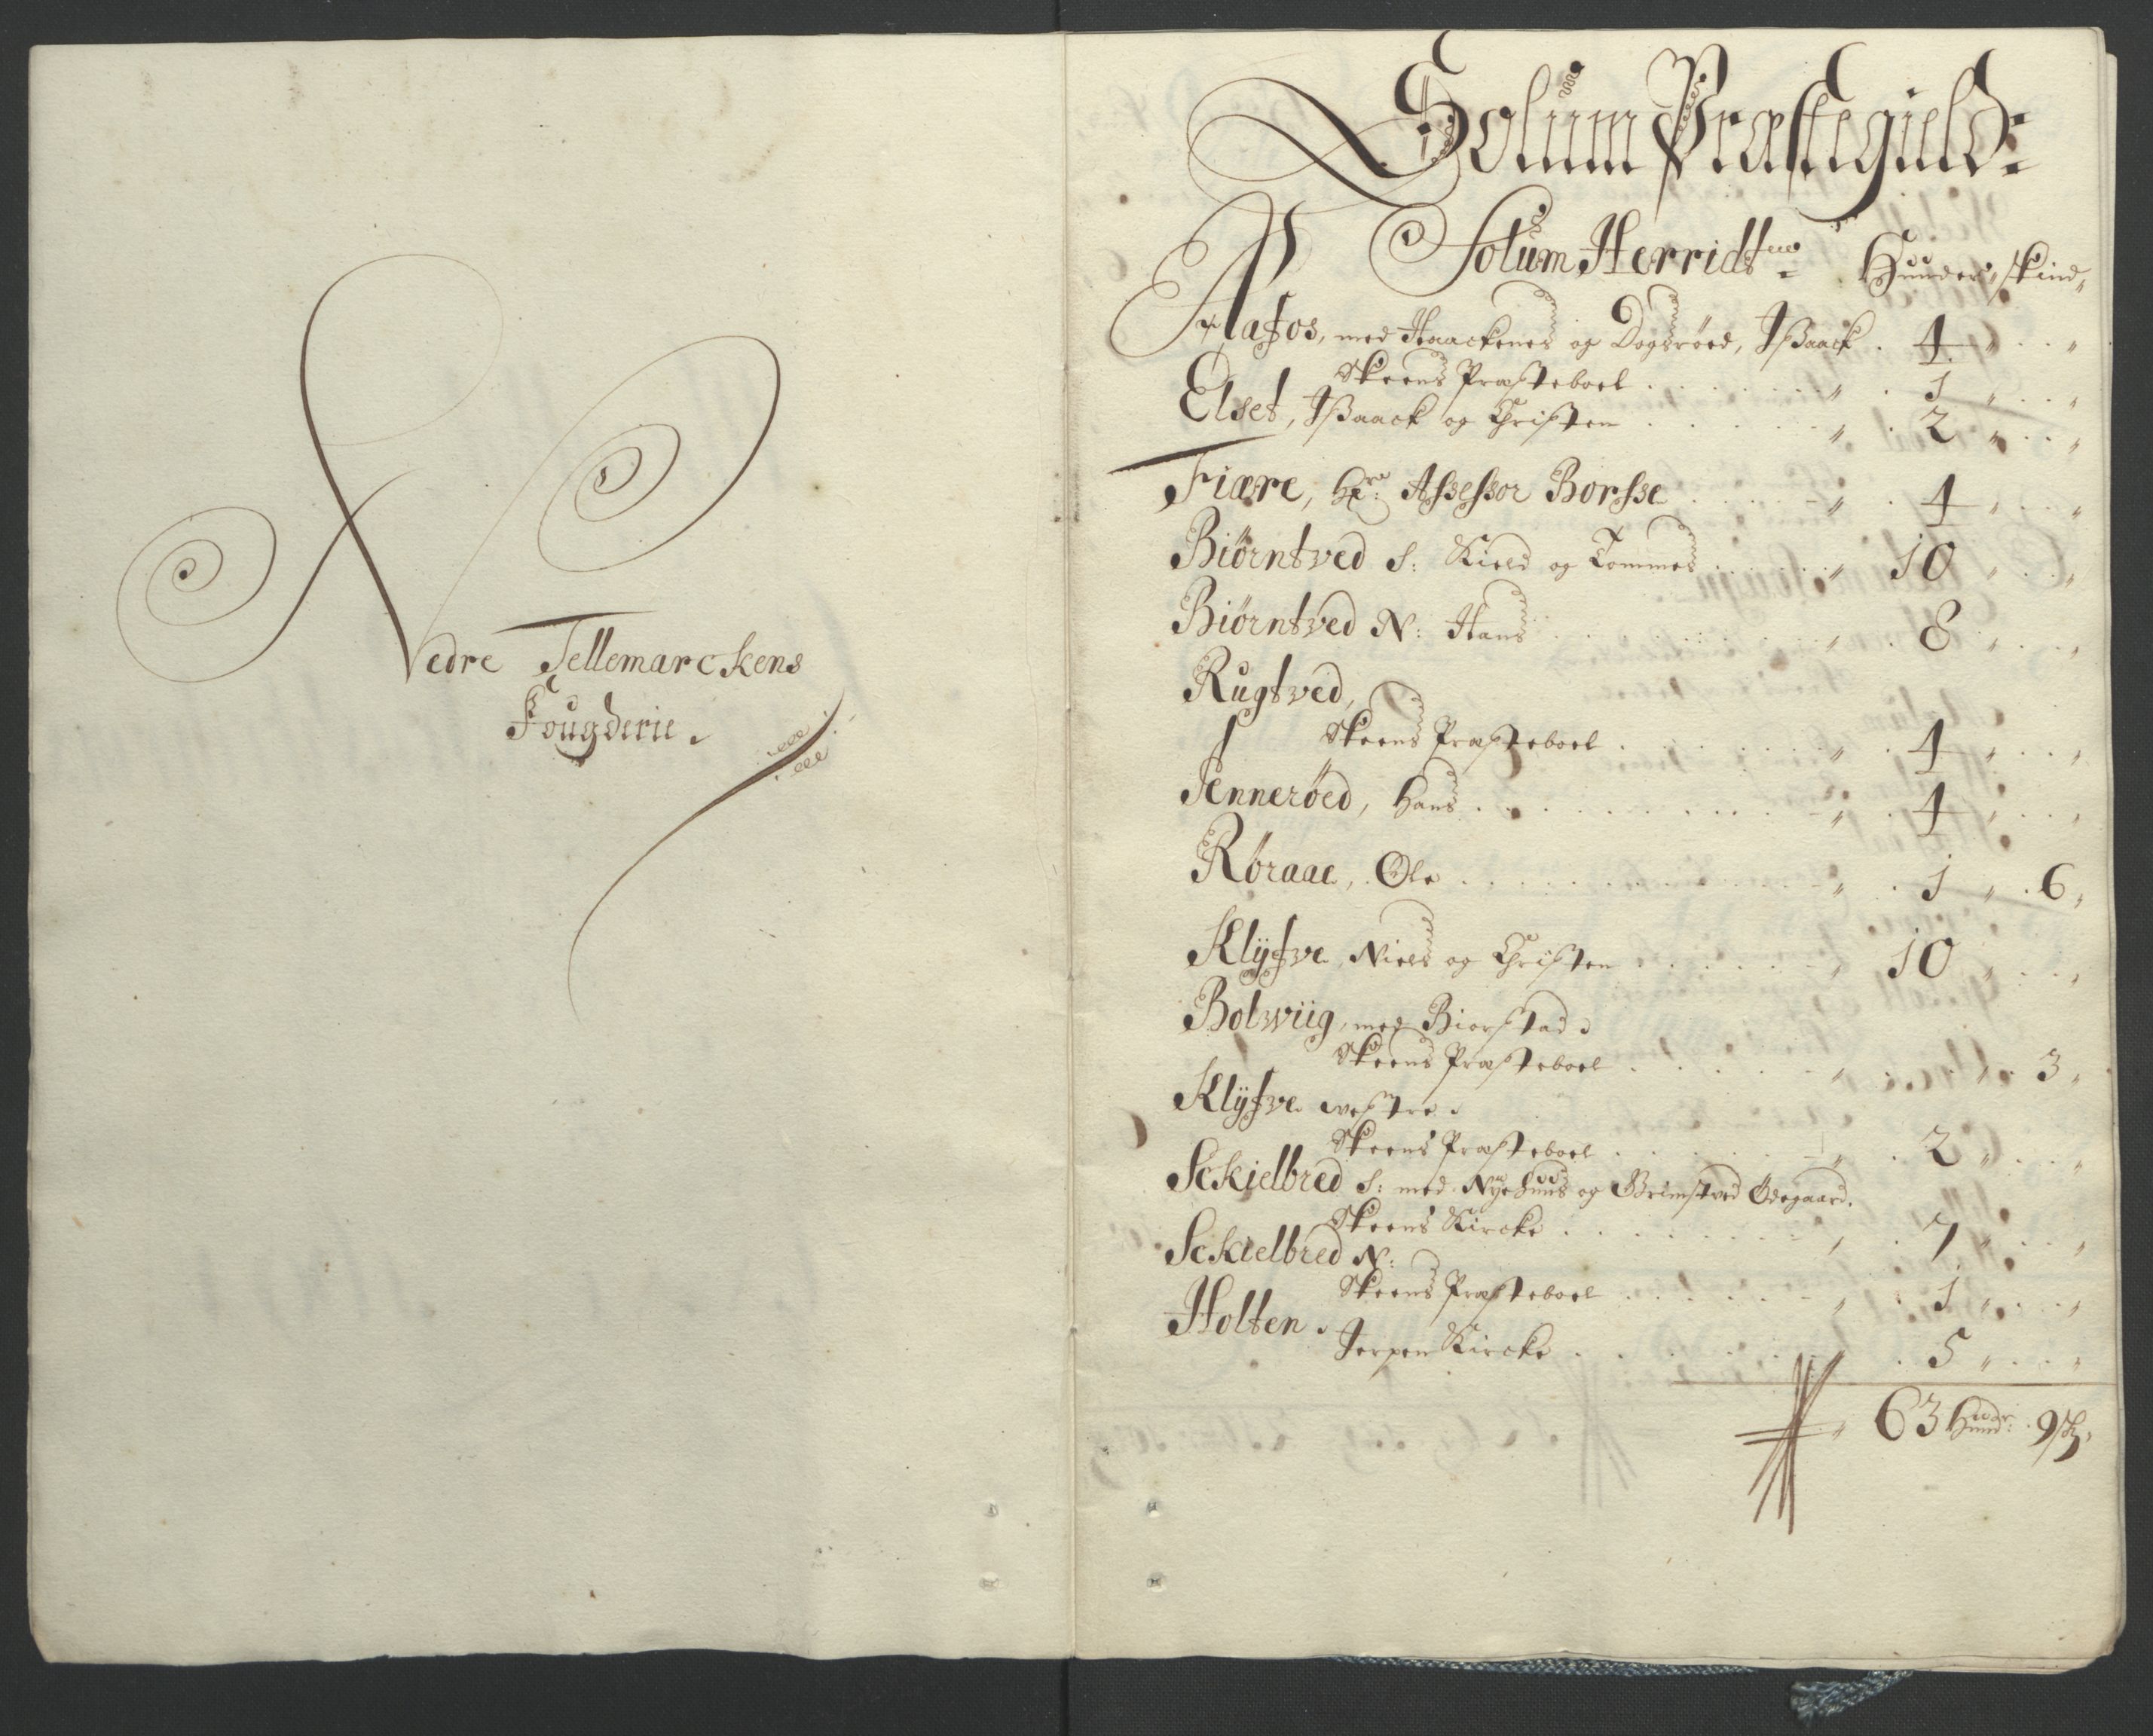 Nedre Tellemarckens
Fougderie.
Solum Præstegield:
Solum Herridt
Hunder, skind,
Aafos, med Haackenes og Dogsröed, Jsaack . 4 " . . "
Skeens Præsteboel . . . . . . " . 1 " . . "
Elset, Jsaack og Christen . . . . . " . 2 " . . "
Fiære, Hr: Assessor Borsse . . . . " . 4 " . . "
Biörntved S: Kield og Tommes . . . . " 10 " . . "
Biörntved N: Hans . . . . . . " . 8 " . . "
Rugtved,
Skeens Præsteboel . . . . . . " . 4 " . . "
Jenneröed, Hans . . . . . . . " . 4 " . . "
Röraae, Ole . . . . . . . . " . 1 " . 6 "
Klÿfve Niels og Christen . . . . . " 10 " . . "
Bolwiig, med Biorstad
Skeens Præsteboel . . . . . " . . . 3 "
Klÿfve westre
Skeens Præsteboel . . . . . " . 2 " . . "
Sckielbred S: med Nÿehuus og Grimstved Ödegaard.
Skeens Kircke . . . . . . " . 7 " . . "
Sckielbred N:
Skeens Præsteboel . . . . . " . 1 " . . "
Holten
Jerpen Kircke . . . . . . . 5 " . . "
" 63 Hundr: . 9 sk,